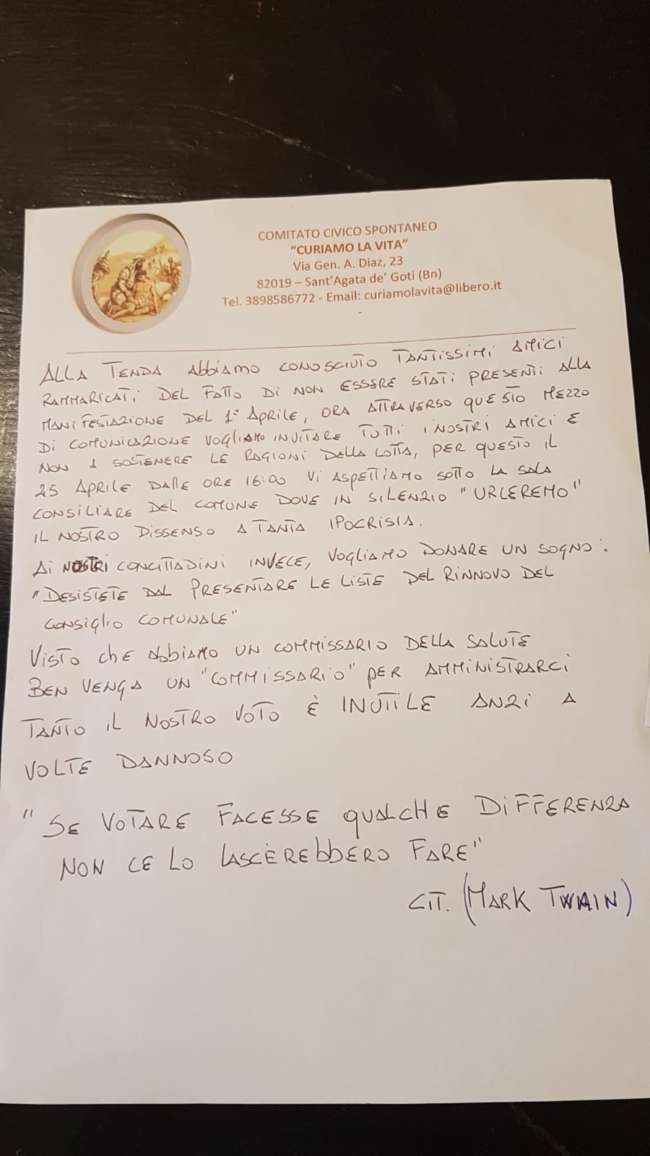 COMITATO CIVICO SPONTANEO
"CURIAMO LA VITA"
Via Gen. A. Diaz, 23
82019 – Sant'Agata de' Goti (Bn)
Tel. 3898586772 - Email: curiamolavita@libero.it
ALLA TENDA ABBIAMO CONOSCIUTO TANTISSIMI AMICI
RAMMARICATI DEL FATTO DI NON ESSERE STATI PRESENTI ALLA
MANIFESTAZIONE DEL 1° APRILE, ORA ATTRAVERSO QUESTO MEZZO
DI COMUNICAZIONE VOGLIAMO INVITARE TUTTI I NOSTRI AMICI E
NON A SOSTENERE LE RAGIONI DELLA LOTTA, PER QUESTO IL
25 APRILE DALLE ORE 16:00 VI ASPETTIAMO SOTTO LA SALA
CONSILIARE DEL COMUNE DOVE IN SILENZIO "URLEREMO"
IL NOSTRO DISSENSO A TANTA IPOCRISIA.
AI NOSTRI CONCITTADINI INVECE, VOGLIAMO DONARE UN SOGNO:
"DESISTETE DAL PRESENTARE LE LISTE DEL RINNOVO DEL
CONSIGLIO COMUNALE"
VISTO CHE ABBIAMO UN COMMISSARIO DELLA SALUTE
BEN VENGA UN "COMMISSARIO" PER AMMINISTRARCI
TANTO IL NOSTRO VOTO È INUTILE ANZI A
VOLTE DANNOSO
"SE VOTARE FACESSE QUALCHE DIFFERENZA
NON CE LO LASCEREBBERO FARE"
CIT. (MARK TWAIN)